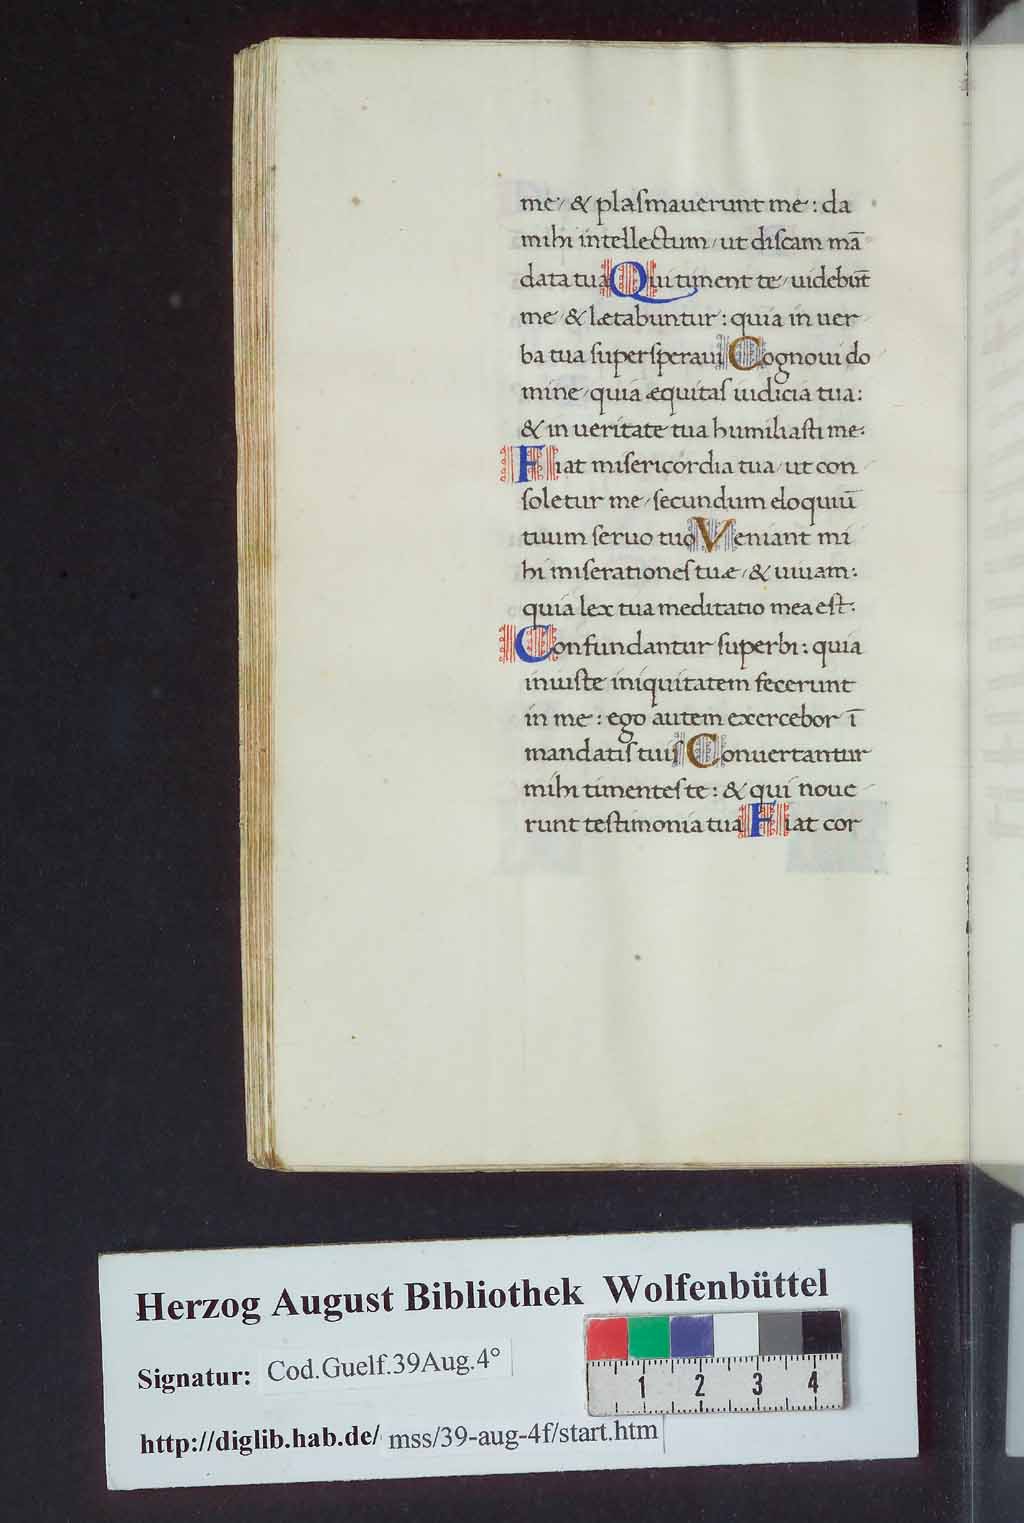 me, & plaſmauerunt me: da
mihi intellectum, ut diſcam mā
data tua Qui timent te, uidebūt
me, & lætabuntur: quia in uer
ba tua ſuperſperaui Cognoui do
mine, quia æquitaſ iudicia tua:
& in ueritate tua humiliaſti me:
Fiat miſericordia tua, ut con
ſoletur me, ſecundum eloquiū
tuum ſeruo tuo Veniant mi
hi miſerationeſ tuæ, & uiuam:
quia lex tua meditatio mea eſt:
Confundantur ſuperbi: quia
iniuſte iniquitatem fecerunt
in me: ego autem exercebor ī
mandatiſ tuiſ Conuertantur
mihi timenteſ te: & qui noue
runt teſtimonia tua Fiat cor
Herzog August Bibliothek Wolfenbüttel
Signatur: Cod.Guelf.39Aug.4°
1 2 3 4
http://diglib.hab.de/ mss/39-aug-4f/start.htm